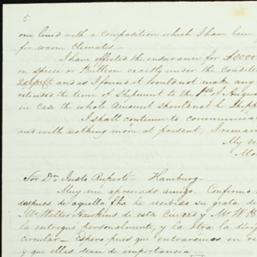 5
one lined with a composition which I have been
for warm climates.
I have effected the insurance for £6000
in specie or Bullion exactly under the conditi
and as I found it would not make any
extended the time of Shipment to the 1st of August
in case the whole amount should not be shipp
I shall continue to communica
and with nothing more at present, I remain
My
Sor Dn Justo Ruperti - Hamburg.
Muy mi apreciado amigo. Confirmo
despues de aquella fha he recibido su grata de
Mr Keller Hawkins de esta Ciudad y Mr W
la entregué personalmente, y la otra la diri
circular - Espero pues que entraremos en re
y que ellas sean de importancia